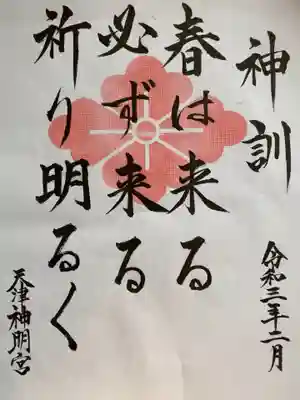 神訓
春は来る
必ず来る
祈り明るく
令和三年二月
天津神明宮